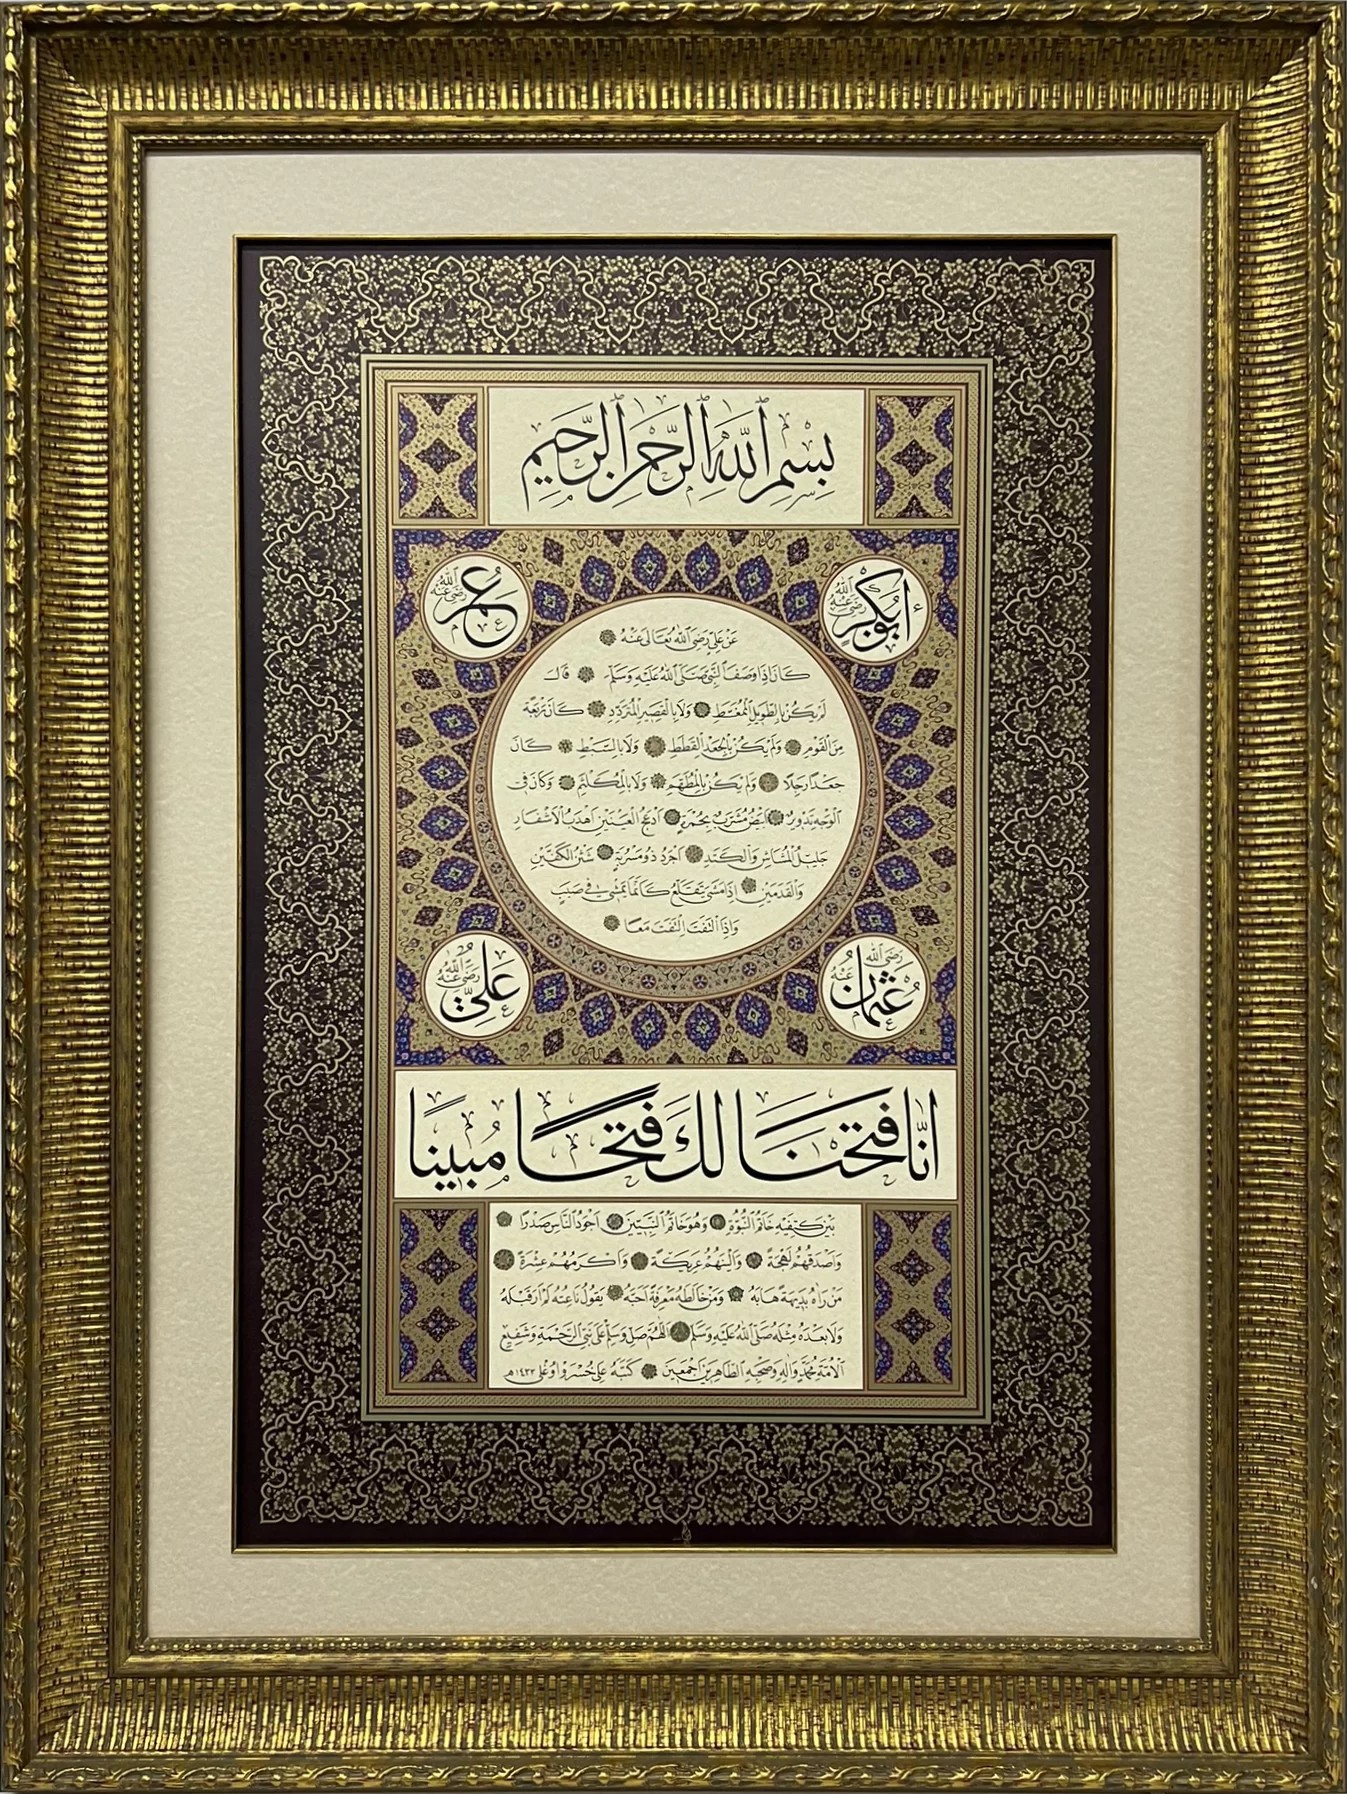 بِسْمِ ٱللهِ ٱلرَّحْمٰنِ ٱلرَّحِيمِ
أَبُو بَكْرٍ رَضِيَ اللّٰهُ عَنْهُ
عُمَرُ رَضِيَ اللّٰهُ عَنْهُ
عَنْ عَلِيٍّ رَضِيَ اللّٰهُ تَعَالٰى عَنْهُ
كَانَ إِذَا وَصَفَ النَّبِيَّ صَلَّى اللّٰهُ عَلَيْهِ وَسَلَّمَ قَالَ
لَمْ يَكُنْ بِالطَّوِيلِ الْمُمَّغِطِ وَلَا بِالْقَصِيرِ الْمُتَرَدِّدِ كَانَ رَبْعَةً
مِنَ الْقَوْمِ وَلَمْ يَكُنْ بِالْجَعْدِ الْقَطَطِ وَلَا بِالسَّبِطِ كَانَ
جَعْدًا رَجِلًا وَلَمْ يَكُنْ بِالْمُطَهَّمِ وَلَا بِالْمُكَلْثَمِ وَكَانَ فِي
الْوَجْهِ تَدْوِيرٌ أَبْيَضُ مُشْرَبٌ بِحُمْرَةٍ أَدْعَجُ الْعَيْنَيْنِ أَهْدَبُ الْأَشْفَارِ
جَلِيلُ الْمُشَاشِ وَالْكَتَدِ أَجْرَدُ ذُو مَسْرُبَةٍ شَثْنُ الْكَفَّيْنِ
وَالْقَدَمَيْنِ إِذَا مَشَى تَقَلَّعَ كَأَنَّمَا يَمْشِي فِي صَبَبٍ
وَإِذَا الْتَفَتَ الْتَفَتَ مَعًا
عُثْمَانُ رَضِيَ اللّٰهُ عَنْهُ
عَلِيٌّ رَضِيَ اللّٰهُ عَنْهُ
اِنَّا فَتَحْنَا لَكَ فَتْحًا مُبِينًا
بَيْنَ كَتِفَيْهِ خَاتَمُ النُّبُوَّةِ وَهُوَ خَاتَمُ النَّبِيِّينَ أَجْوَدُ النَّاسِ صَدْرًا
وَأَصْدَقُهُمْ لَهْجَةً وَأَلْيَنُهُمْ عَرِيكَةً وَأَكْرَمُهُمْ عِشْرَةً
مَنْ رَآهُ بَدِيهَةً هَابَهُ وَمَنْ خَالَطَهُ مَعْرِفَةً أَحَبَّهُ يَقُولُ نَاعِتُهُ لَمْ أَرَ قَبْلَهُ
وَلَا بَعْدَهُ مِثْلَهُ صَلَّى اللّٰهُ عَلَيْهِ وَسَلَّمَ اللّٰهُمَّ صَلِّ وَسَلِّمْ عَلَى نَبِيِّ الرَّحْمَةِ وَشَفِيعِ
الْأُمَّةِ مُحَمَّدٍ وَآلِهِ وَصَحْبِهِ الطَّاهِرِينَ أَجْمَعِينَ كَتَبَهُ عَلِي خُسْرَوْ اوُغْلِي ١٤٣٢هـ